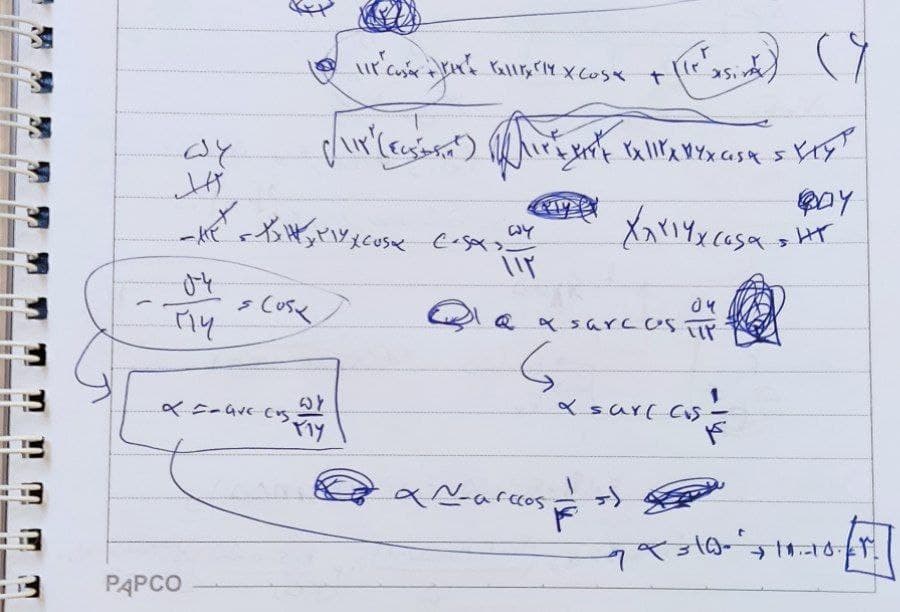 ۱۱۲² cos²α + ۲۱۶² + ۲×۱۱۲×۲۱۶ × cosα + (۱۱۲² × sin²α) (۶
√۱۱۲² (cos² + sin²) ۱۱۲² + ۲۱۶² + ۲×۱۱۲×۲۱۶ × cosα = ۲۱۶²
۵۶
۱۱۲
-۱۱۲ = ۲×۲۱۶ × cosα cosα = ۵۶/۱۱۲ ۲×۲۱۶ × cosα = ۱۱۲ ۵۶
- ۵۶/۲۱۶ = cosα
α = arc cos ۵۶/۱۱۲
α = -arc cos ۵۶/۲۱۶
α = arc cos ۱/۴
α ≃ -arccos ۱/۴ ⇒
α = ۱۵۰° → ۱۸۰-۱۵۰ = ۳۰
PAPCO